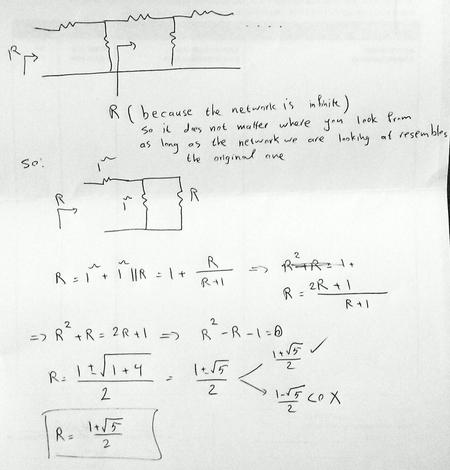 R
R (because the network is infinite)
so it does not matter where you look from
as long as the network we are looking at resembles
the original one
so:
1Ω
R 1Ω R
R = 1Ω + 1Ω || R = 1 + R/(R+1) => R² + R = 1 +
R = (2R+1)/(R+1)
=> R² + R = 2R + 1 => R² - R - 1 = 0
R = (1 ± √(1+4))/2 = (1 ± √5)/2 < (1+√5)/2 ✓
(1-√5)/2 < 0 X
R = (1+√5)/2